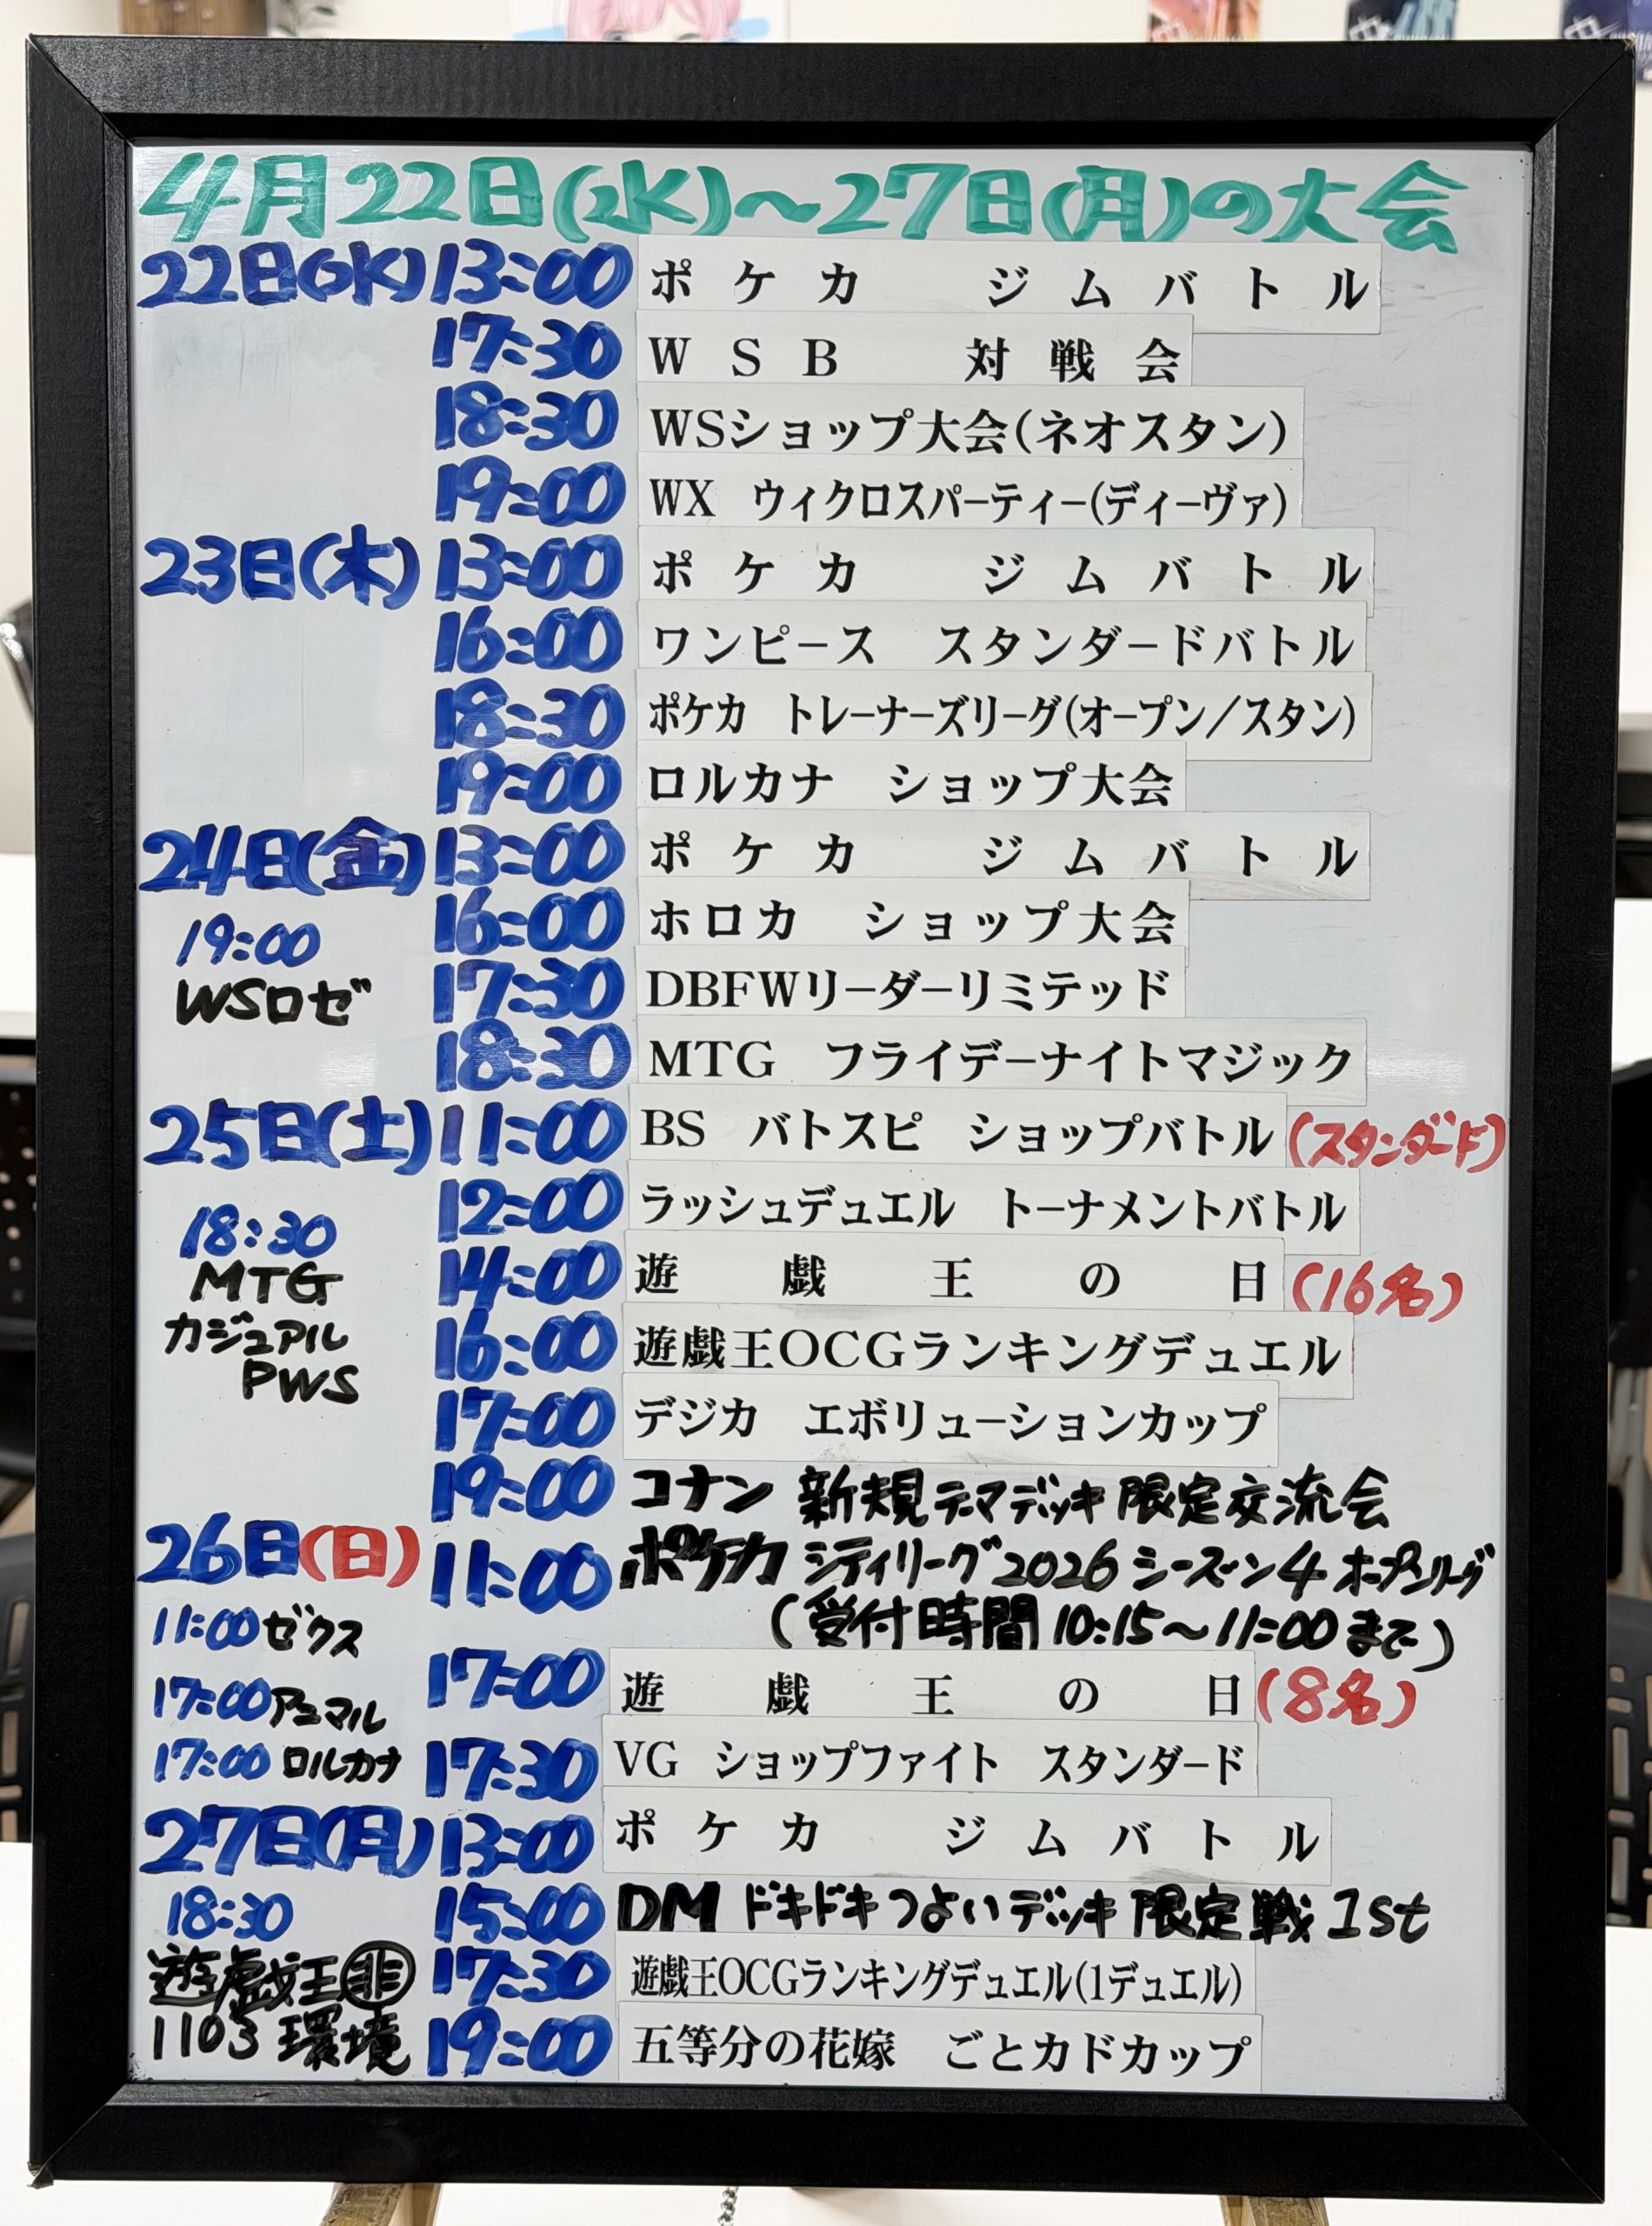 4月22日(水)～27日(月)の大会
22日(水) 13:00 ポケカ ジムバトル
17:30 WSB 対戦会
18:30 WSショップ大会(ネオスタン)
19:00 WX ウィクロスパーティー(ディーヴァ)
23日(木) 13:00 ポケカ ジムバトル
16:00 ワンピース スタンダードバトル
18:30 ポケカ トレーナーズリーグ(オープン/スタン)
19:00 ロルカナ ショップ大会
24日(金) 13:00 ポケカ ジムバトル
16:00 ホロカ ショップ大会
19:00
WSロゼ
17:30 DBFWリーダーリミテッド
18:30 MTG フライデーナイトマジック
25日(土) 11:00 BS バトスピ ショップバトル (スタンダード)
12:00 ラッシュデュエル トーナメントバトル
18:30
MTG
カジュアル
PWS
14:00 遊戯王の日 (16名)
16:00 遊戯王OCGランキングデュエル
17:00 デジカ エボリューションカップ
19:00 コナン 新規テーマデッキ限定交流会
26日(日) 11:00 ポケカ シティリーグ2026 シーズン4 オープンリーグ
(受付時間 10:15～11:00まで)
11:00 ゼクス
17:00 アニマル
17:00 ロルカナ
17:00 遊戯王の日 (8名)
17:30 VG ショップファイト スタンダード
27日(月) 13:00 ポケカ ジムバトル
18:30
遊戯王㊡
1103環境
15:00 DM ドキドキつよいデッキ限定戦 1st
17:30 遊戯王OCGランキングデュエル(1デュエル)
19:00 五等分の花嫁 ごとカドカップ